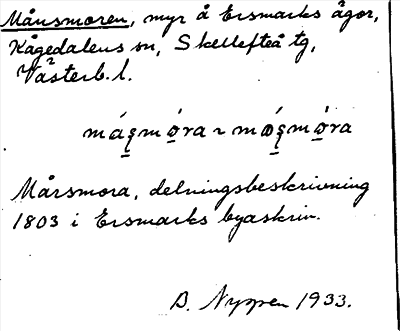 Månsmoren, myr å Ersmarks ägor,
Kågedalens sn, Skellefteå tg,
Västerb. l.
mą́smǫ́ra ~ mǫ́smǫ́ra
Mårsmora, delningsbeskrivning
1803 i Ersmarks byaskrin.
B. Nyppen 1933.